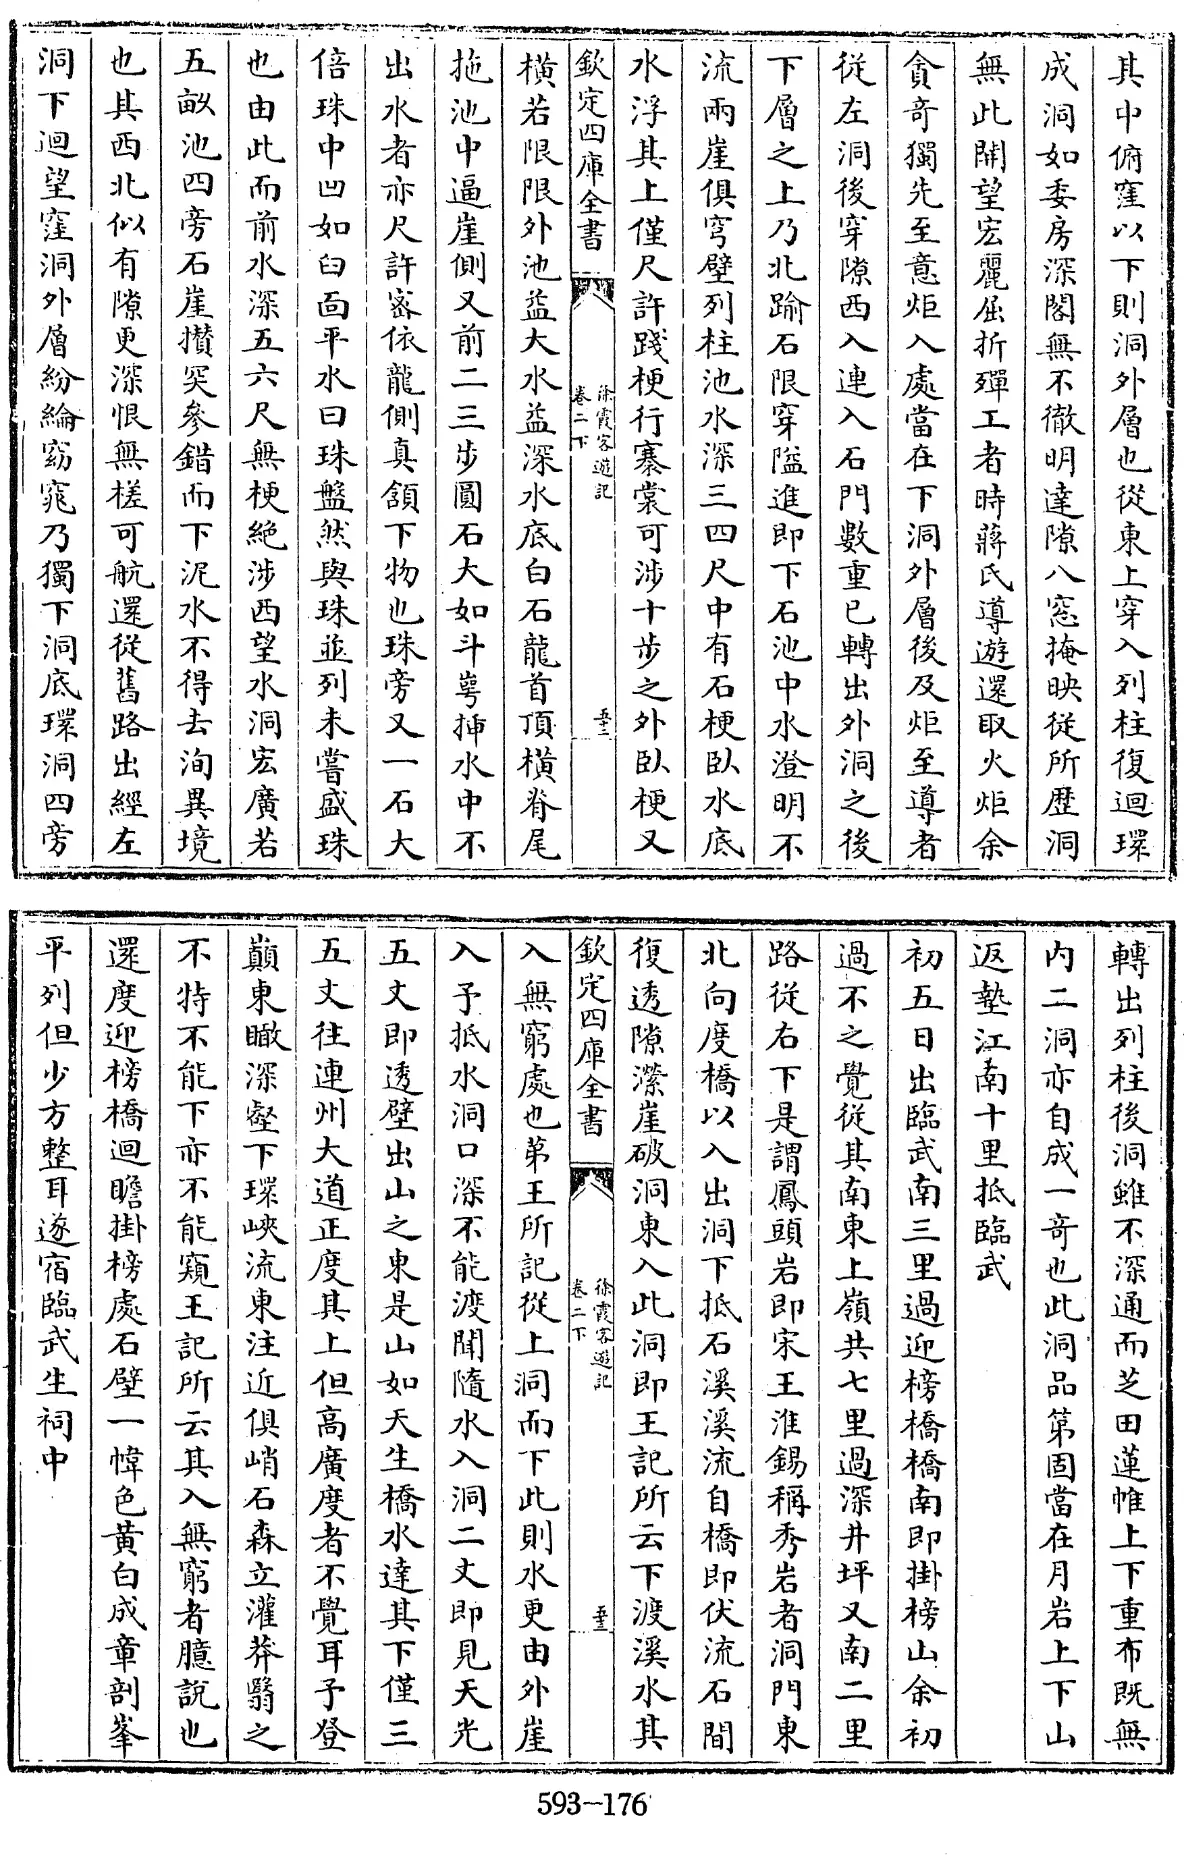 其中俯窪以下則洞外層也從東上穿入列柱復迴環
成洞如委房深閣無不徹明達隙八窓掩映從所歴洞
無此開望宏麗屈折殫工者時蔣氏導遊還取火炬余
貪竒獨先至意炬入處當在下洞外層後及炬至導者
從左洞後穿隙西入連入石門數重已轉出外洞之後
下層之上乃北踰石限穿隘進即下石池中水澄明不
流兩崖俱穹壁列柱池水深三四尺中有石梗臥水底
水浮其上僅尺許踐梗行褰裳可涉十步之外臥梗又
欽定四庫全書
徐霞客遊記
卷二下
至三
橫若限限外池益大水益深水底白石龍首頂橫脊尾
拖池中逼崖側又前二三步圓石大如斗萼揷水中不
出水者亦尺許宻依龍側真頷下物也珠旁又一石大
倍珠中凹如臼面平水曰珠盤然與珠並列未嘗盛珠
也由此而前水深五六尺無梗絶涉西望水洞宏廣若
五畝池四旁石崖攅突參錯而下泥水不得去洵異境
也其西北似有隙更深恨無槎可航還從舊路出經左
洞下迴望窪洞外層紛綸窈窕乃獨下洞底環洞四旁
轉出列柱後洞雖不深通而芝田蓮帷上下重布既無
内二洞亦自成一竒也此洞品第固當在月岩上下山
返墊江南十里抵臨武
初五日出臨武南三里過迎榜橋橋南即掛榜山余初
過不之覺從其南東上嶺共七里過深井坪又南二里
路從右下是謂鳳頭岩即宋王淮錫稱秀岩者洞門東
北向度橋以入出洞下抵石溪溪流自橋即伏流石間
復透隙瀠崖破洞東入此洞即王記所云下渡溪水其
欽定四庫全書
徐霞客遊記
卷二下
至三
入無窮處也第王所記從上洞而下此則水更由外崖
入予抵水洞口深不能渡聞隨水入洞二丈即見天光
五丈即透壁出山之東是山如天生橋水達其下僅三
五丈往連州大道正度其上但高廣度者不覺耳予登
巔東瞰深壑下環峽流東注近俱峭石森立灌莽翳之
不特不能下亦不能窺王記所云其入無窮者臆說也
還度迎榜橋迴瞻掛榜處石壁一幃色黃白成章剖峯
平列但少方整耳遂宿臨武生祠中
593-176